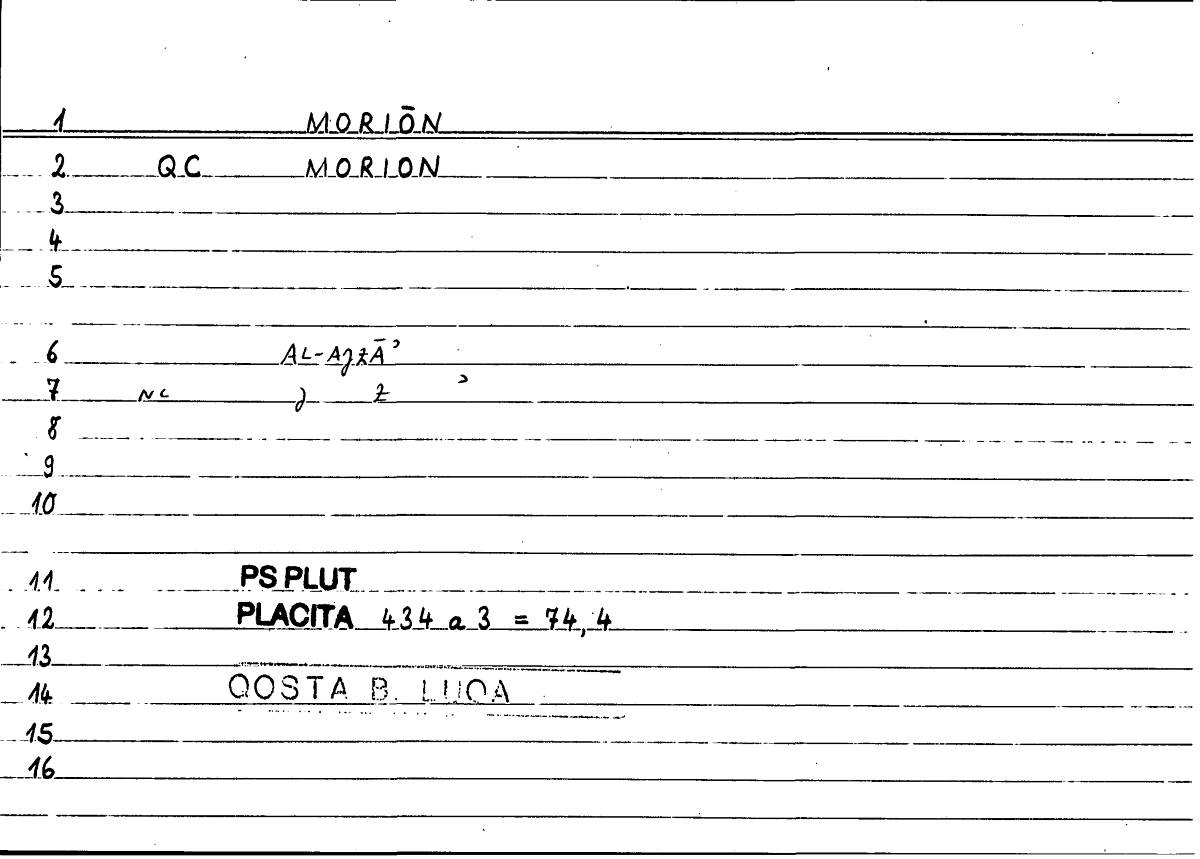 1 MORIŌN
2 QC MORION
3
4
5
6 AL-AJZĀʾ
7 NC J Z ʾ
8
9
10
11 PS PLUT
12 PLACITA 434 a 3 = 74, 4
13
14 QOSTA B. LUQA
15
16